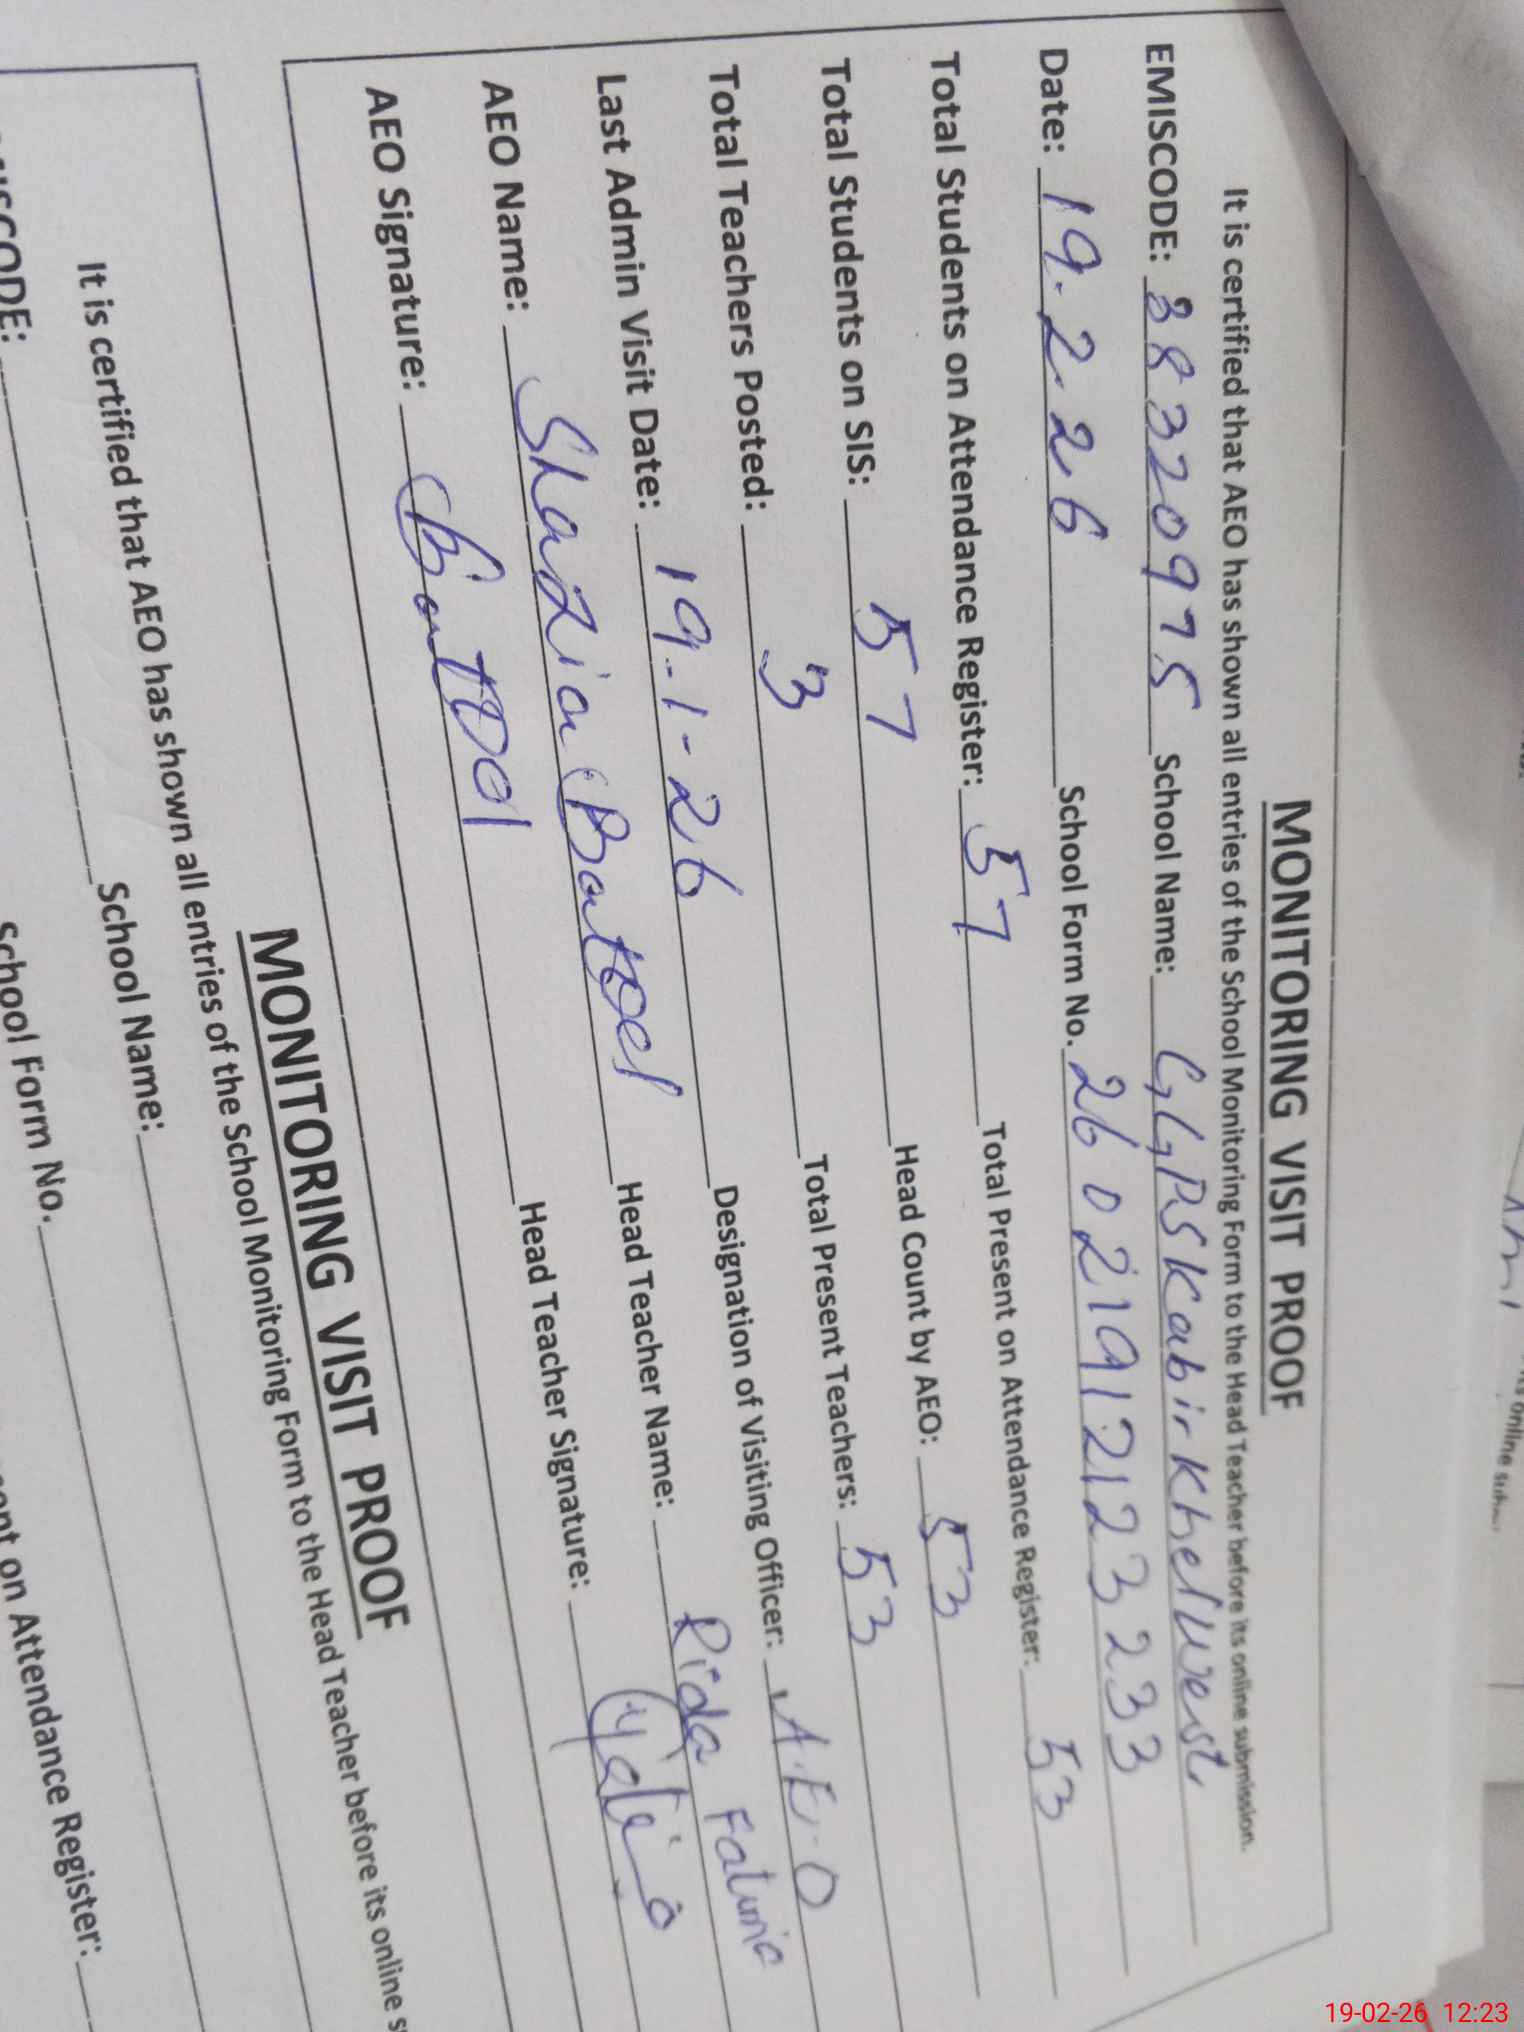 MONITORING VISIT PROOF
It is certified that AEO has shown all entries of the School Monitoring Form to the Head Teacher before its online submission.
EMISCODE: 38320975 School Name: GGPS Kabir Khel West
Date: 19.2.26 School Form No. 26021912123233
Total Students on Attendance Register: 57 Total Present on Attendance Register: 53
Total Students on SIS: 57 Head Count by AEO: 53
Total Teachers Posted: 3 Total Present Teachers: 53
Last Admin Visit Date: 19-1-26 Designation of Visiting Officer: A.E.O
AEO Name: Shazia Batool Head Teacher Name: Rida Fatima
AEO Signature: Batool Head Teacher Signature:
MONITORING VISIT PROOF
It is certified that AEO has shown all entries of the School Monitoring Form to the Head Teacher before its online
School Name:
School Form No.
on Attendance Register:
19-02-26 12:23